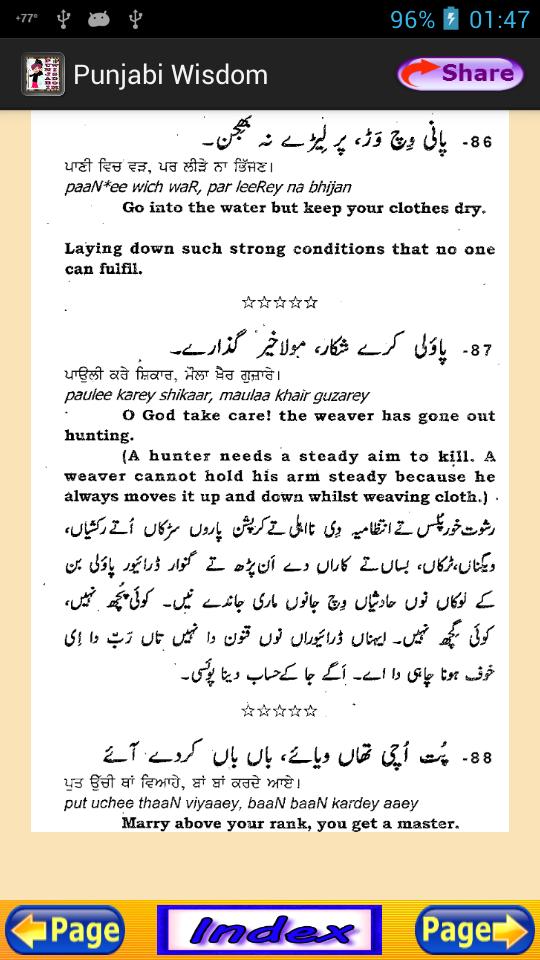 +77° 96% 01:47
Punjabi Wisdom Share
86- پانی وِچ وَڑ، پر لِیڑے نہ بھِجّن۔
ਪਾਣੀ ਵਿਚ ਵੜ, ਪਰ ਲੀੜੇ ਨਾ ਭਿੱਜਣ।
paaN*ee wich waR, par leeRey na bhijan
Go into the water but keep your clothes dry.
Laying down such strong conditions that no one
can fulfil.
☆☆☆☆☆
87- پاؤلی کرے شکار، مولا خیر گذارے۔
ਪਾਉਲੀ ਕਰੇ ਸ਼ਿਕਾਰ, ਮੌਲਾ ਖ਼ੈਰ ਗੁਜ਼ਾਰੇ।
paulee karey shikaar, maulaa khair guzarey
O God take care! the weaver has gone out
hunting.
(A hunter needs a steady aim to kill. A
weaver cannot hold his arm steady because he
always moves it up and down whilst weaving cloth.)
رشوت خور پُلس تے انتظامیہ دِی نااہلی تے کرپشن پاروں سڑکاں اُتے رکشیاں،
ویگناں، ٹرکاں، بساں تے کاراں دے اَن پڑھ تے گنوار ڈرائیور پاؤلی بن
کے لوکاں نوں حادثیاں وِچ جانوں ماری جاندے نیں۔ کوئی پُچھ نہیں،
کوئی گِچھ نہیں۔ ایہناں ڈرائیوراں نوں قنون دا نہیں تاں رَبّ دا اِی
خوف ہونا چاہی دا اے۔ اَگے جا کے حساب دینا پوئسی۔
☆☆☆☆☆
88- پُت اُچّی تھاں ویائے، باں باں کردے آئے
ਪੁਤ ਉੱਚੀ ਥਾਂ ਵਿਆਹੇ, ਬਾਂ ਬਾਂ ਕਰਦੇ ਆਏ।
put uchee thaaN viyaaey, baaN baaN kardey aaey
Marry above your rank, you get a master.
Page Index Page